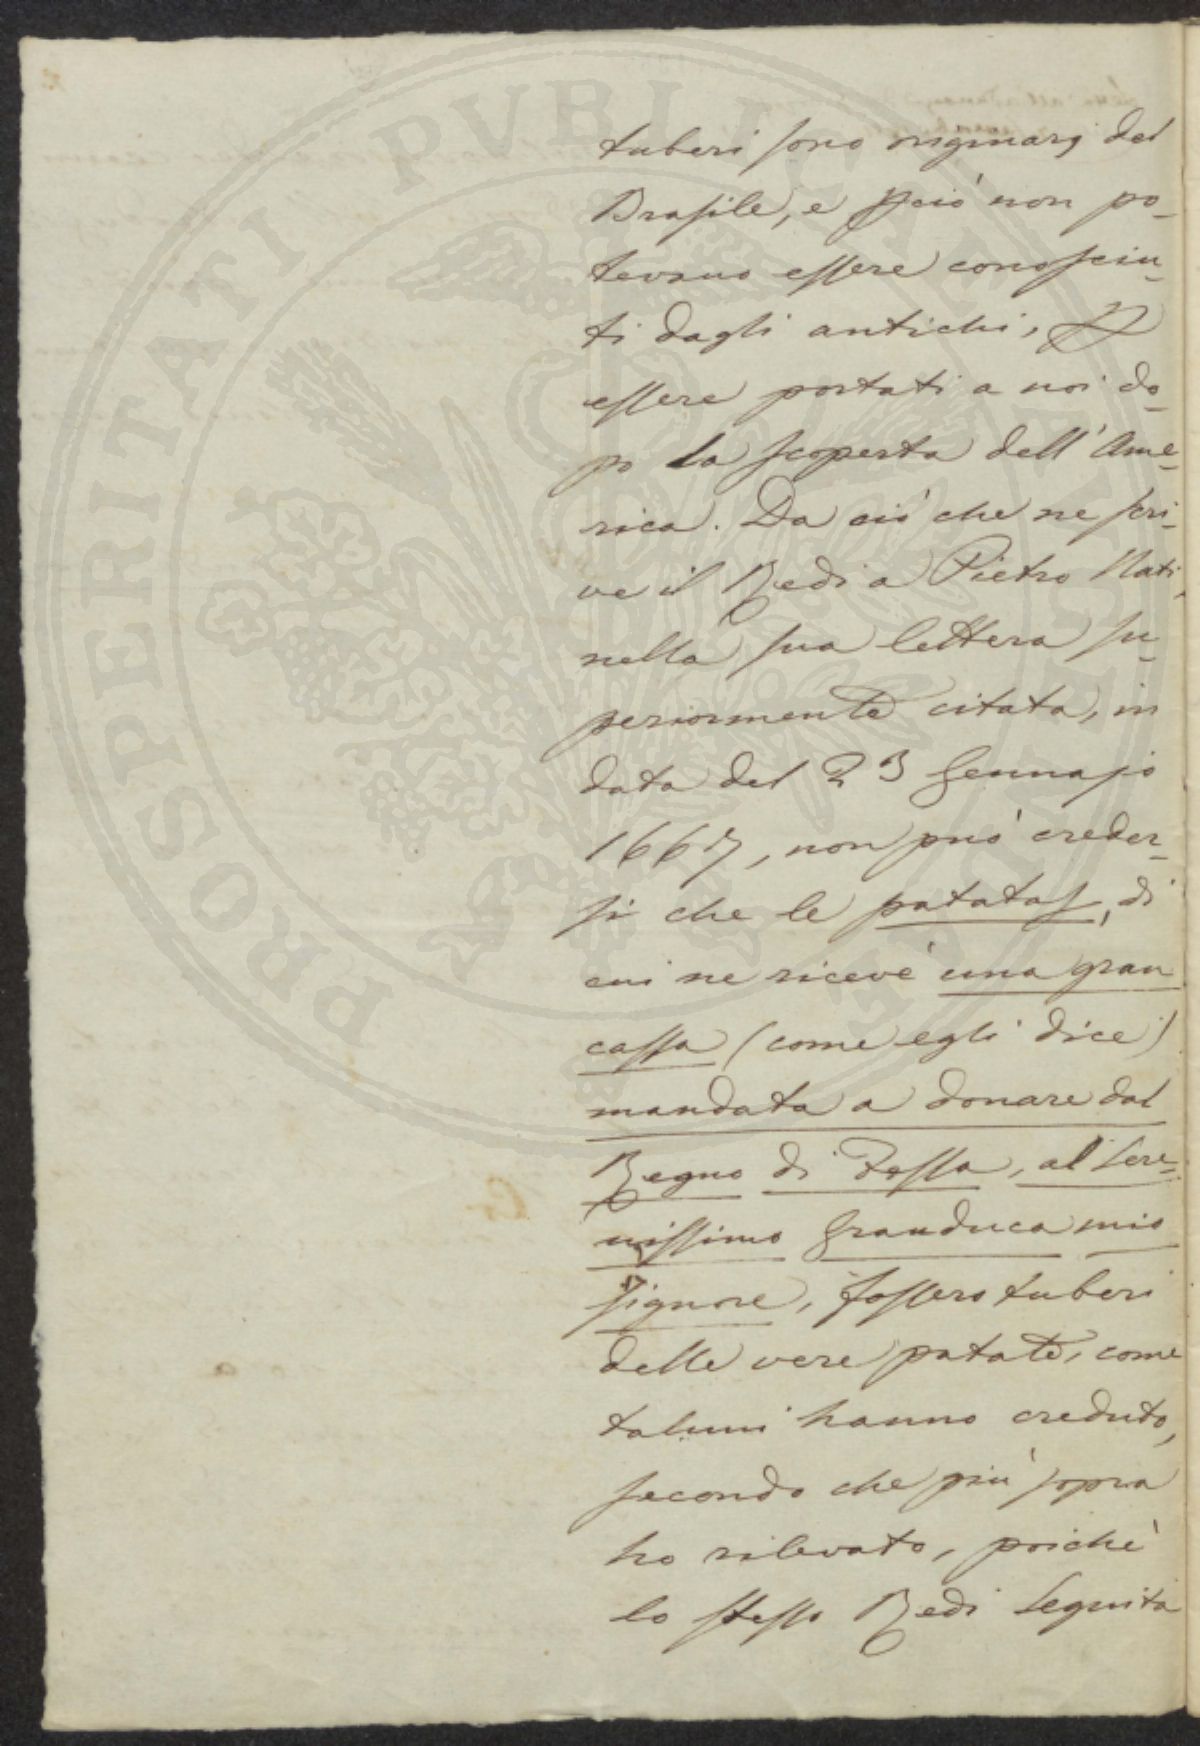 PROSPERITATI PVBLICAE AVGENDAE
tuberi sono originarj del
Brasile, e pciò non po-
tevano essere conosciu-
ti dagli antichi, p
essere portati a noi do-
po la scoperta dell'Ame-
rica. Da ciò che ne scri-
ve il Redi a Pietro Nati,
nella sua lettera su-
periormente citata, in
data del 23 Gennajo
1667, non può creder-
si che le patatas, di
cui ne ricevè una gran
cassa (come egli dice)
mandata a donare dal
Regno di Fessa, al Sere-
nissimo Granduca mio
signore, fossero tuberi
delle vere patate, come
taluni hanno creduto,
secondo che più sopra
ho rilevato, poichè
lo stesso Redi seguita